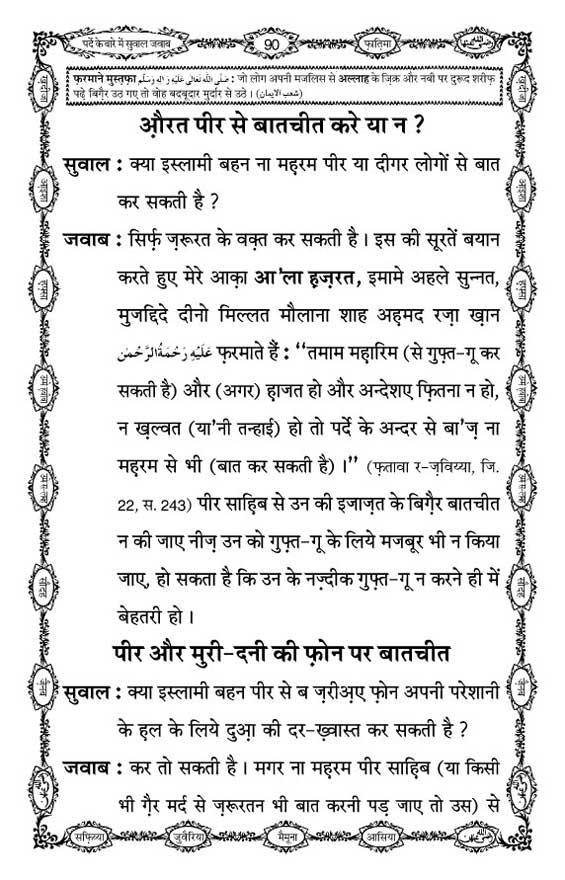 पर्दे के बारे में सुवाल जवाब 90 फ़ातिमा
फ़रमाने मुस्तफ़ा صَلَّى اللّٰهُ تَعَالٰى عَلَيْهِ وَاٰلِهٖ وَسَلَّم : जो लोग अपनी मजलिस से अल्लाह के ज़िक्र और नबी पर दुरूद शरीफ़
पढ़े बिग़ैर उठ गए तो वोह बदबूदार मुर्दार से उठे । (شعب الایمان)
औ़रत पीर से बातचीत करे या न ?
सुवाल : क्या इस्लामी बहन ना मह़रम पीर या दीगर लोगों से बात
कर सकती है ?
जवाब : सिर्फ़ ज़रूरत के वक़्त कर सकती है । इस की सूरतें बयान
करते हुए मेरे आक़ा आ'ला ह़ज़रत, इमामे अहले सुन्नत,
मुजद्दिदे दीनो मिल्लत मौलाना शाह अह़मद रज़ा ख़ान
عَلَيْهِ رَحْمَةُ الرَّحْمٰن फ़रमाते हैं : “तमाम मह़ारिम (से गुफ़्त-गू कर
सकती है) और (अगर) ह़ाजत हो और अन्देशए फ़ितना न हो,
न ख़ल्वत (या'नी तन्हाई) हो तो पर्दे के अन्दर से बा'ज़ ना
मह़रम से भी (बात कर सकती है) ।” (फ़तावा र-ज़विय्या, जि.
22, स. 243) पीर साह़िब से उन की इजाज़त के बिग़ैर बातचीत
न की जाए नीज़ उन को गुफ़्त-गू के लिये मजबूर भी न किया
जाए, हो सकता है कि उन के नज़्दीक गुफ़्त-गू न करने ही में
बेहतरी हो ।
पीर और मुरी-दनी की फ़ोन पर बातचीत
सुवाल : क्या इस्लामी बहन पीर से ब ज़रीअ़ए फ़ोन अपनी परेशानी
के ह़ल के लिये दुआ़ की दर-ख़्वास्त कर सकती है ?
जवाब : कर तो सकती है । मगर ना मह़रम पीर साह़िब (या किसी
भी ग़ैर मर्द से ज़रूरतन भी बात करनी पड़ जाए तो उस) से
सफ़िय्या जुवैरिया मैमूना आसिया